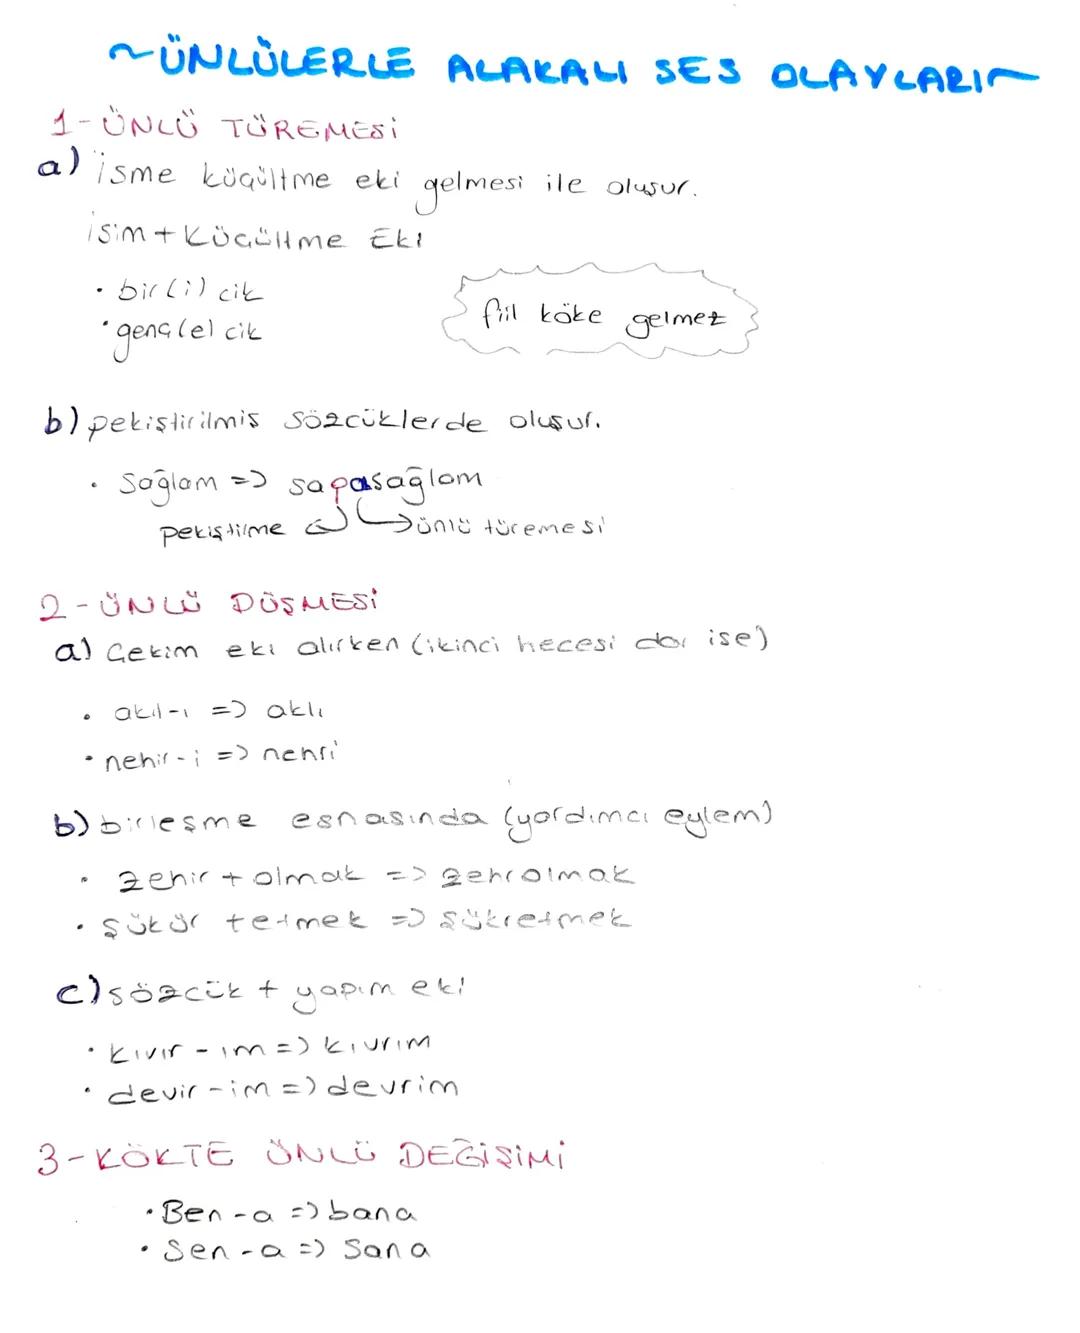 ~ÜNLÜLERLE ALAKALI SES OLAYLARI~
1-ÜNLÜ TÜREMESİ
a) isme küçültme eki gelmesi ile oluşur.
isim + Küçültme Eki
• bir(i)cik
• genç(e)cik
fiil köke gelmez
b) pekiştirilmiş sözcüklerde oluşur.
• Sağlam => sapasağlam
pekiştirme ünlü türemesi
2-ÜNLÜ DÜŞMESİ
a) Çekim eki alırken (ikinci hecesi dar ise)
• akıl-ı => aklı
• nehir-i => nehri
b) birleşme esnasında (yardımcı eylem)
• zehir + olmak => zehrolmak
• şükür + etmek => şükretmek
c) sözcük + yapım eki
• kıvır-ım => kıvrım
• devir-im => devrim
3-KÖKTE ÜNLÜ DEĞİŞİMİ
• Ben-a => bana
• Sen-a => Sana